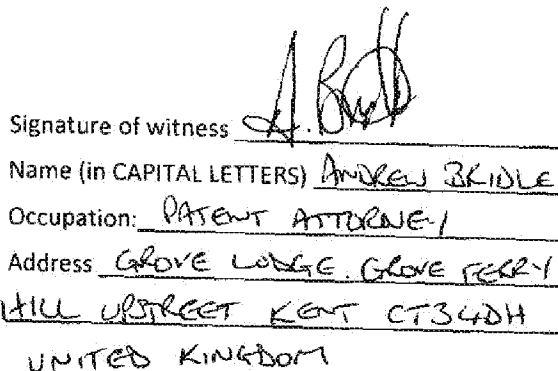 Signature of witness A. Bridle
Name (in CAPITAL LETTERS) ANDREW BRIDLE
Occupation: PATENT ATTORNEY
Address GROVE LODGE. GROVE FERRY
HILL UPSTREET KENT CT3 4DH
UNITED KINGDOM